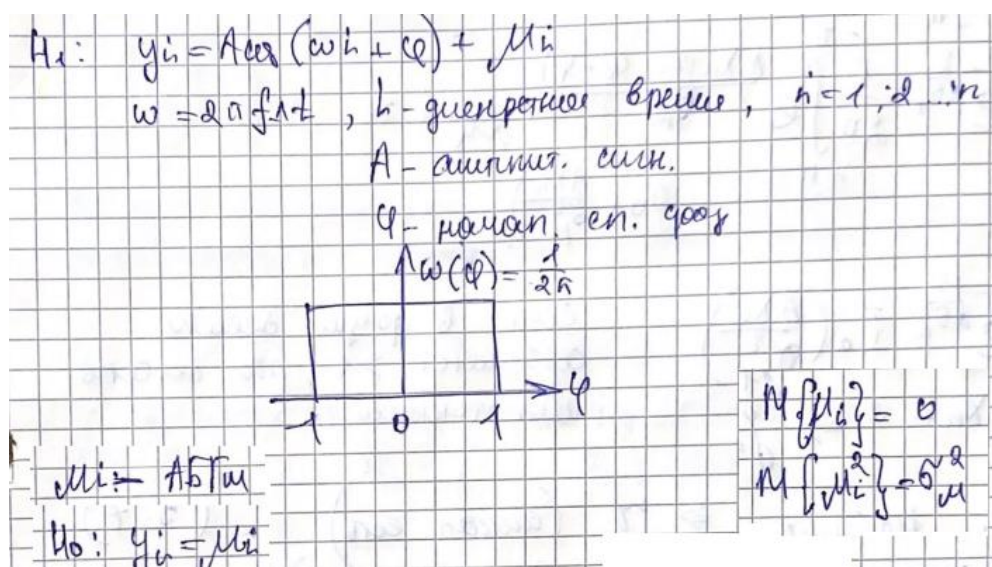 H₁: yi = A cos (ωi + φ) + μi
ω = 2π f Δt, i - дискретное время, i = 1; 2 ... n
А - амплит. сигн.
φ - начал. сл. фаз
ω(φ) = 1/2π
φ
-1 0 1
M{μi} = 0
μi :- АБГш
M{μi²} = σ²μ
H₀: yi = μi